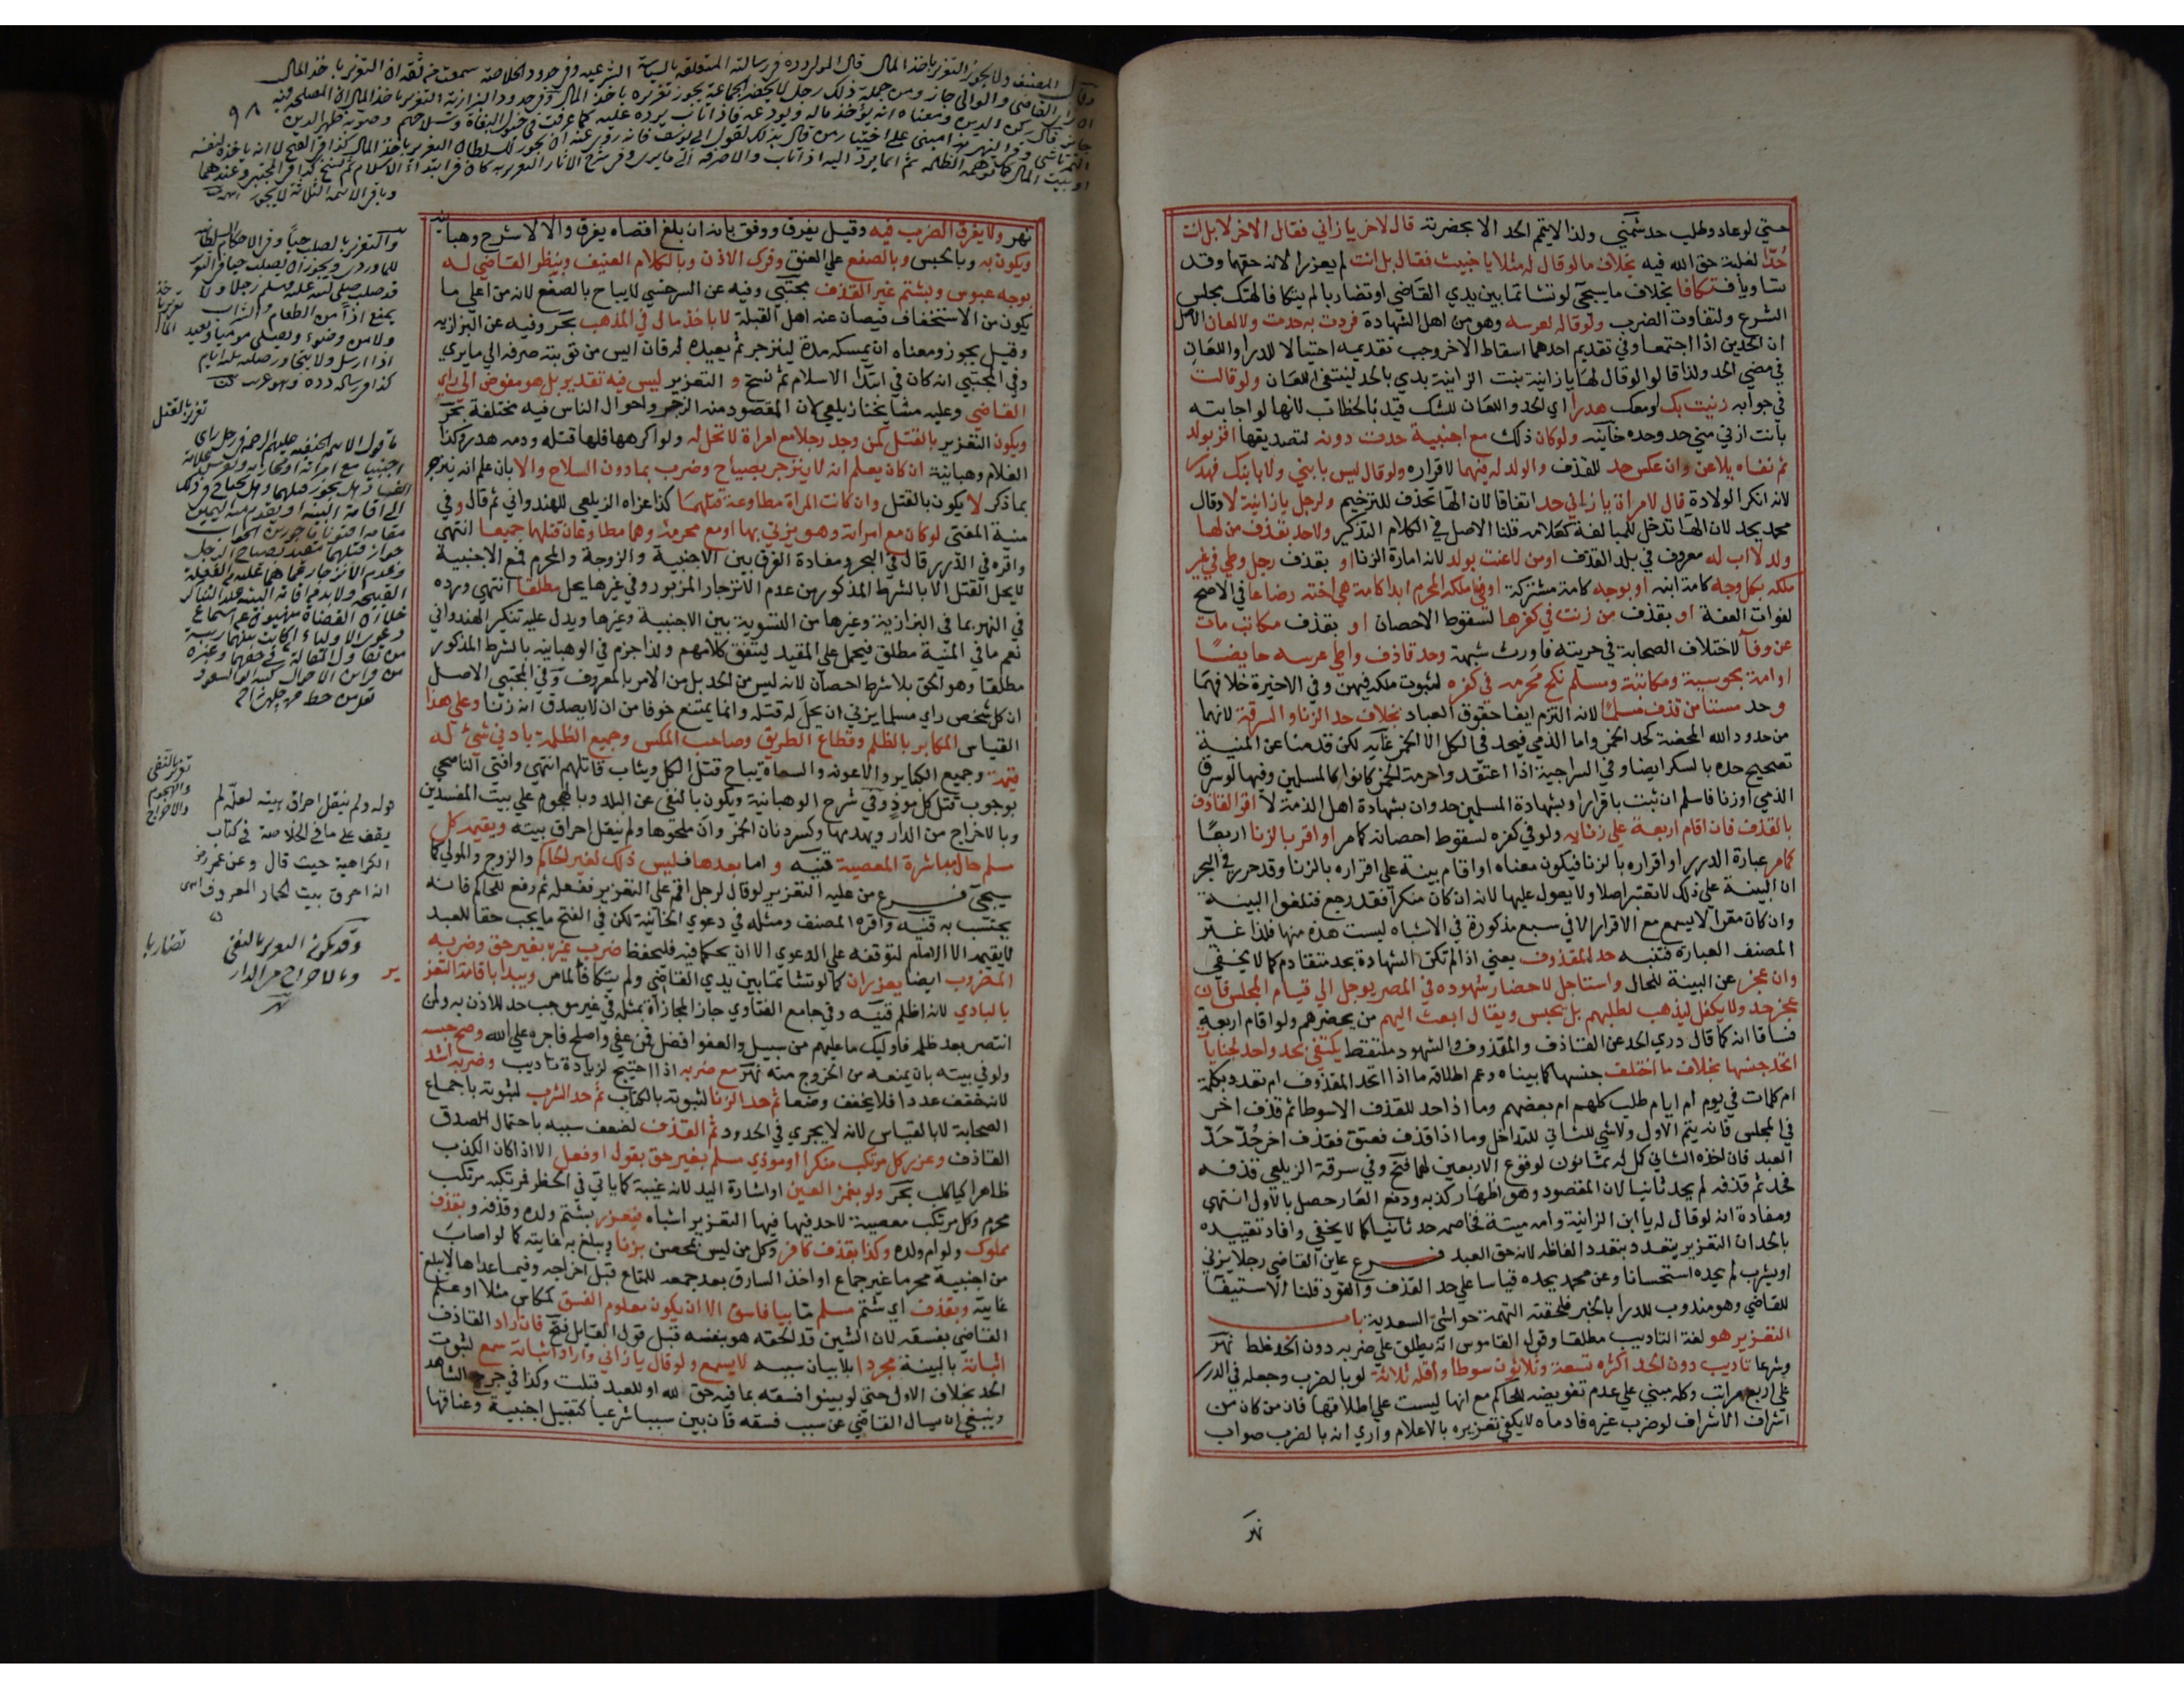 حتي لو عاد وطلب حد شمني ولذا لا يتم الحد الا بحضرته قال لاخر يا زاني فقال الاخر لا بل انت
حدا لغلبة حق الله فيه بخلاف ما لو قال له مثلا يا خبيث فقال بل انت لم يعزرا لانه حقهما وقد
تساويا فتكافا بخلاف ما سيجئ لو تشاتما بين يدي القاضي او تضاربا لم يتكافا لهتك مجلس
الشرع ولتفاوت الضرب ولو قاله لعرسه وهو من اهل الشهادة فردت به حدت ولا لعان الاصل
ان الحدين اذا اجتمعا وفي تقديم احدهما اسقاط الاخر وجب تقديمه احتيالا للدرا واللعان
في معني الحد ولذا قالوا لو قال لها يا زانية بنت الزانية بدي بالحد لينتفي اللعان ولو قالت
في جوابه زنيت بك او معك هدرا اي الحد واللعان للشك قيد بالخطاب لانها لو اجابته
بانت ازني مني حد وحده خانيه ولو كان ذلك مع اجنبية حدت دونه لتصديقها اقر بولد
ثم نفاه يلاعن وان عكس حد للقذف والولد له فيهما لاقراره ولو قال ليس بابني ولا بابنك فهدر
لانه انكر الولادة قال لامراة يا زاني حد اتفاقا لان الهاء تحذف للترخيم ولرجل يا زانية لا وقال
محمد يحد لان الها تدخل للمبالغة كعلامه قلنا الاصل في الكلام التذكير ولا حد بقذف من لها
ولد لا اب له معروف في بلد القذف او من لاعنت بولد لانه امارة الزنا او بقذف رجل وطي في غير
ملكه بكل وجه كامة ابنه او بوجه كامة مشتركة او في ملكه المحرم ابدا كامة هي اخته رضاعا في الاصح
لفوات العفة او بقذف من زنت في كفرها لسقوط الاحصان او بقذف مكاتب مات
عن وفا لاختلاف الصحابة في حريته فاورث شبهة وحد قاذف واطي عرسه حايضا
او امة مجوسية ومكاتبة ومسلم نكح محرمه في كفره لثبوت ملكه فيهن وفي الاخيرة خلافهما
وحد مستامن قذف مسلما لانه التزم ايفا حقوق العباد بخلاف حد الزنا والسرقة لانهما
من حدود الله المحضة كحد الخمر واما الذمي فيحد في الكل الا الخمر غايه لكن قدمنا عن المنية
تصحيح حده بالسكر ايضا وفي السراجية اذا اعتقدوا حرمة الخمر كانوا كالمسلمين وفيها لو سرق
الذمي او زنا فاسلم ان ثبت باقراره او بشهادة المسلمين حد وان بشهادة اهل الذمة لا اقر القاذف
بالقذف فان اقام اربعة علي زناه ولو في كفره لسقوط احصانه كما مر او اقر بالزنا اربعا
كما مر عبارة الدرر او اقراره بالزنا فيكون معناه او اقام بينة علي اقراره بالزنا وقد حرر في البحر
ان البينة علي ذلك لا تعتبر اصلا ولا يعول عليها لانه ان كان منكرا فقد رجع فتلغوا البينة
وان كان مقرا لا يسمع مع الاقرار الا في سبع مذكورة في الاشباه ليست هذه منها فلذا غير
المصنف العبارة فتنبه حد المقذوف يعني اذا لم تكن الشهادة بحد متقادم كما لا يخفي
وان عجز عن البينة للحال واستاجل لاحضار شهوده في المصر يوجل الي قيام المجلس فان
عجز حد ولا يكفل ليذهب لطلبهم بل يحبس ويقال ابعث اليهم من يحضرهم ولو اقام اربعة
فساقا انه كما قال دري الحد عن القاذف والمقذوف والشهود ملتقط يكتفي بحد واحد لجنايات
اتحد جنسها بخلاف ما اختلف جنسها كما بيناه وعم اطلاقه ما اذا اتحد المقذوف ام تعدد بكلمة
ام كلمات في يوم ام ايام طلب كلهم ام بعضهم وما اذا حد للقذف الا سوطا ثم قذف اخر
في المجلس فانه يتم الاول ولا شي للثاني للتداخل وما اذا قذف فعتق فقذف اخر حد حد
العبد فان اخذه الثاني كمل له ثمانون لوقوع الاربعين لهما فتح وفي سرقة الزيلعي قذفه
فحد ثم قذفه لم يحد ثانيا لان المقصود وهو اظهار كذبه ودفع العار حصل بالاول انتهي
ومفاده انه لو قال له يا ابن الزانية وامه ميتة فخاصمه حد ثانيا كما لا يخفي وافاد تقييده
بالحد ان التعزير يتعدد بتعدد الفاظه لانه حق العبد فرع عاين القاضي رجلا يزني
او يشرب لم يحده استحسانا وعن محمد يحده قياسا علي حد القذف والقود قلنا الاستيفا
للقاضي وهو مندوب للدرا بالخبر فلحقته التهمة حواشي السعدية باب
التعزير هو لغة التاديب مطلقا وقول القاموس انه يطلق علي ضربه دون الحد غلط نهر
وشرعا تاديب دون الحد اكثره تسعة وثلاثون سوطا واقله ثلاثة لو بالضرب وجعله في الدرر
علي اربع مراتب وكله مبني علي عدم تفويضه للحاكم مع انها ليست علي اطلاقها فان من كان من
اشراف الاشراف لو ضرب غيره فادماه لا يكفي تعزيره بالاعلام واري انه بالضرب صواب
نهر
نهر ولا يفرق الضرب فيه وقيل يفرق ووفق بانه ان بلغ اقصاه يفرق والا لا شرح وهبانيه
ويكون به وبالحبس وبالصفع علي العنق وفرك الاذن وبالكلام العنيف وينظر القاضي له
بوجه عبوس وبشتم غير القذف مجتبي وفيه عن السرخسي لا يباح بالصفع لانه من اعلي ما
يكون من الاستخفاف فيصان عنه اهل القبلة لا باخذ مال في المذهب بحر وفيه عن البزازيه
وقيل يجوز ومعناه ان يمسكه مدة لينزجر ثم يعيده له فان ايس من توبته صرفه الي ما يري
وفي المجتبي انه كان في ابتدا الاسلام ثم نسخ و التعزير ليس فيه تقدير بل هو مفوض الي راي
القاضي وعليه مشايخنا زيلعي لان المقصود منه الزجر واحوال الناس فيه مختلفة بحر
ويكون التعزير بالقتل كمن وجد رجلا مع امراة لا تحل له ولو اكرهها فلها قتله ودمه هدر وكذا
الغلام وهبانية ان كان يعلم انه لا ينزجر بصياح وضرب بما دون السلاح والا بان علم انه ينزجر
بما ذكر لا يكون بالقتل وان كانت المراة مطاوعة قتلهما كذا عزاه الزيلعي للهندواني ثم قال وفي
منية المفتي لو كان مع امراته وهو يزني بها او مع محرمه وهما مطاوعان قتلهما جميعا انتهي
واقره في الدرر قال في البحر ومفاده الفرق بين الاجنبية والزوجة والمحرم فمع الاجنبية
لا يحل القتل الا بالشرط المذكور من عدم الانزجار المزبور وفي غيرها يحل مطلقا انتهي ورده
في النهر بما في البزازية وغيرها من التسوية بين الاجنبية وغيرها ويدل عليه تنكير الهندواني
نعم ما في المنية مطلق فيحمل علي المقيد ليتفق كلامهم ولذا جزم في الوهبانيه بالشرط المذكور
مطلقا وهو الحق بلا شرط احصان لانه ليس من الحد بل من الامر بالمعروف وفي المجتبي الاصل
ان كل شخص راي مسلما يزني ان يحل له قتله وانما يمتنع خوفا من ان لا يصدق انه زنا وعلي هذا
القياس المكابر بالظلم وقطاع الطريق وصاحب المكس وجميع الظلمة بادني شئ له
قيمة وجميع الكباير والاعونه والسعاة يباح قتل الكل ويثاب قاتلهم انتهي وافتي الناصحي
بوجوب قتل كل موذ وفي شرح الوهبانية ويكون بالنفي عن البلد وبالهجوم علي بيت المفسدين
وبالاخراج من الدار وبهدمها وكسر دنان الخمر وان ملحوها ولم ينقل احراق بيته ويقيمه كل
مسلم حال مباشرة المعصية قنيه و اما بعدها فليس ذلك لغير الحاكم والزوج والمولي كما
سيجئ فرع من عليه التعزير لو قال لرجل اقم علي التعزير ففعله ثم رفع للحاكم فانه
يحتسب به قنيه واقره المصنف ومثله في دعوي الخانية لكن في الفتح ما يجب حقا للعبد
لا يقيمه الا الامام لتوقفه علي الدعوي الا ان يحكما فيه فليحفظ ضرب غيره بغير حق وضربه
المضروب ايضا يعزران كما لو تشاتما بين يدي القاضي ولم يتكافا لما مر ويبدا باقامة التعزير
بالبادي لانه اظلم قنيه وفي جامع الفتاوي جاز المجازاة بمثله في غير موجب حد للاذن به ولمن
انتصر بعد ظلمه فاوليك ما عليهم من سبيل والعفو افضل فمن عفي واصلح فاجره علي الله وصح حبسه
ولو في بيته بان يمنعه من الخروج منه نهر مع ضربه اذا احتيج لزيادة تاديب وضربه اشد
لانه خفف عددا فلا يخفف وصفا ثم حد الزنا لثبوته بالكتاب ثم حد الشرب لثبوته باجماع
الصحابة لا بالقياس لانه لا يجري في الحدود ثم القذف لضعف سببه باحتمال الصدق
القاذف وعزر كل مرتكب منكر او موذي مسلم بغير حق بقول او فعل الا اذا كان الكذب
ظاهرا كيا كلب بحر ولو بغمز العين او اشارة اليد لانه غيبة كما ياتي في الحظر فمرتكبه مرتكب
محرم وكل مرتكب معصية لا حد فيها فيها التعزير اشباه فيعزر بشتم ولده وقذفه وبقذف
مملوك ولو ام ولده وكذا بقذف كافر وكل من ليس بمحصن بزنا ويبلغ به غايته كما لو اصاب
من اجنبية محرما غير جماع او اخذ السارق بعد جمعه للمتاع قبل اخراجه وفيما عداها لا يبلغ
غايته وبقذف اي شتم مسلم ما بيا فاسق الا ان يكون معلوم الفسق كمكاس مثلا او علم
القاضي بفسقه لان الشين قد لحقه هو بنفسه قبل قول القايل فتح فان اراد القاذف
اثباته بالبينة مجردا بلا بيان سببه لا يسمع ولو قال يا زاني واراد اثباته سمع لثبوت
الحد بخلاف الاول حتي لو بينوا فسقه بما فيه حق لله او للعبد قبلت وكذا في جرح الشاهد
وينبغي ان يسال القاضي عن سبب فسقه فان بين سببا شرعيا كتقبيل اجنبية وعناقها
٩٨
تعزير بالقتل
تعزير بالنفي
والهجوم
والاخراج
قوله ولم ينقل احراق بيته لعله لم
يقف علي ما في الخلاصة في كتاب
الكراهية حيث قال وعن عمر رضي
انه احرق بيت الخمار المعروف
وقد يكون التعزير بالنفي
وبالاخراج من الدار
نهر
تضاربا
ير